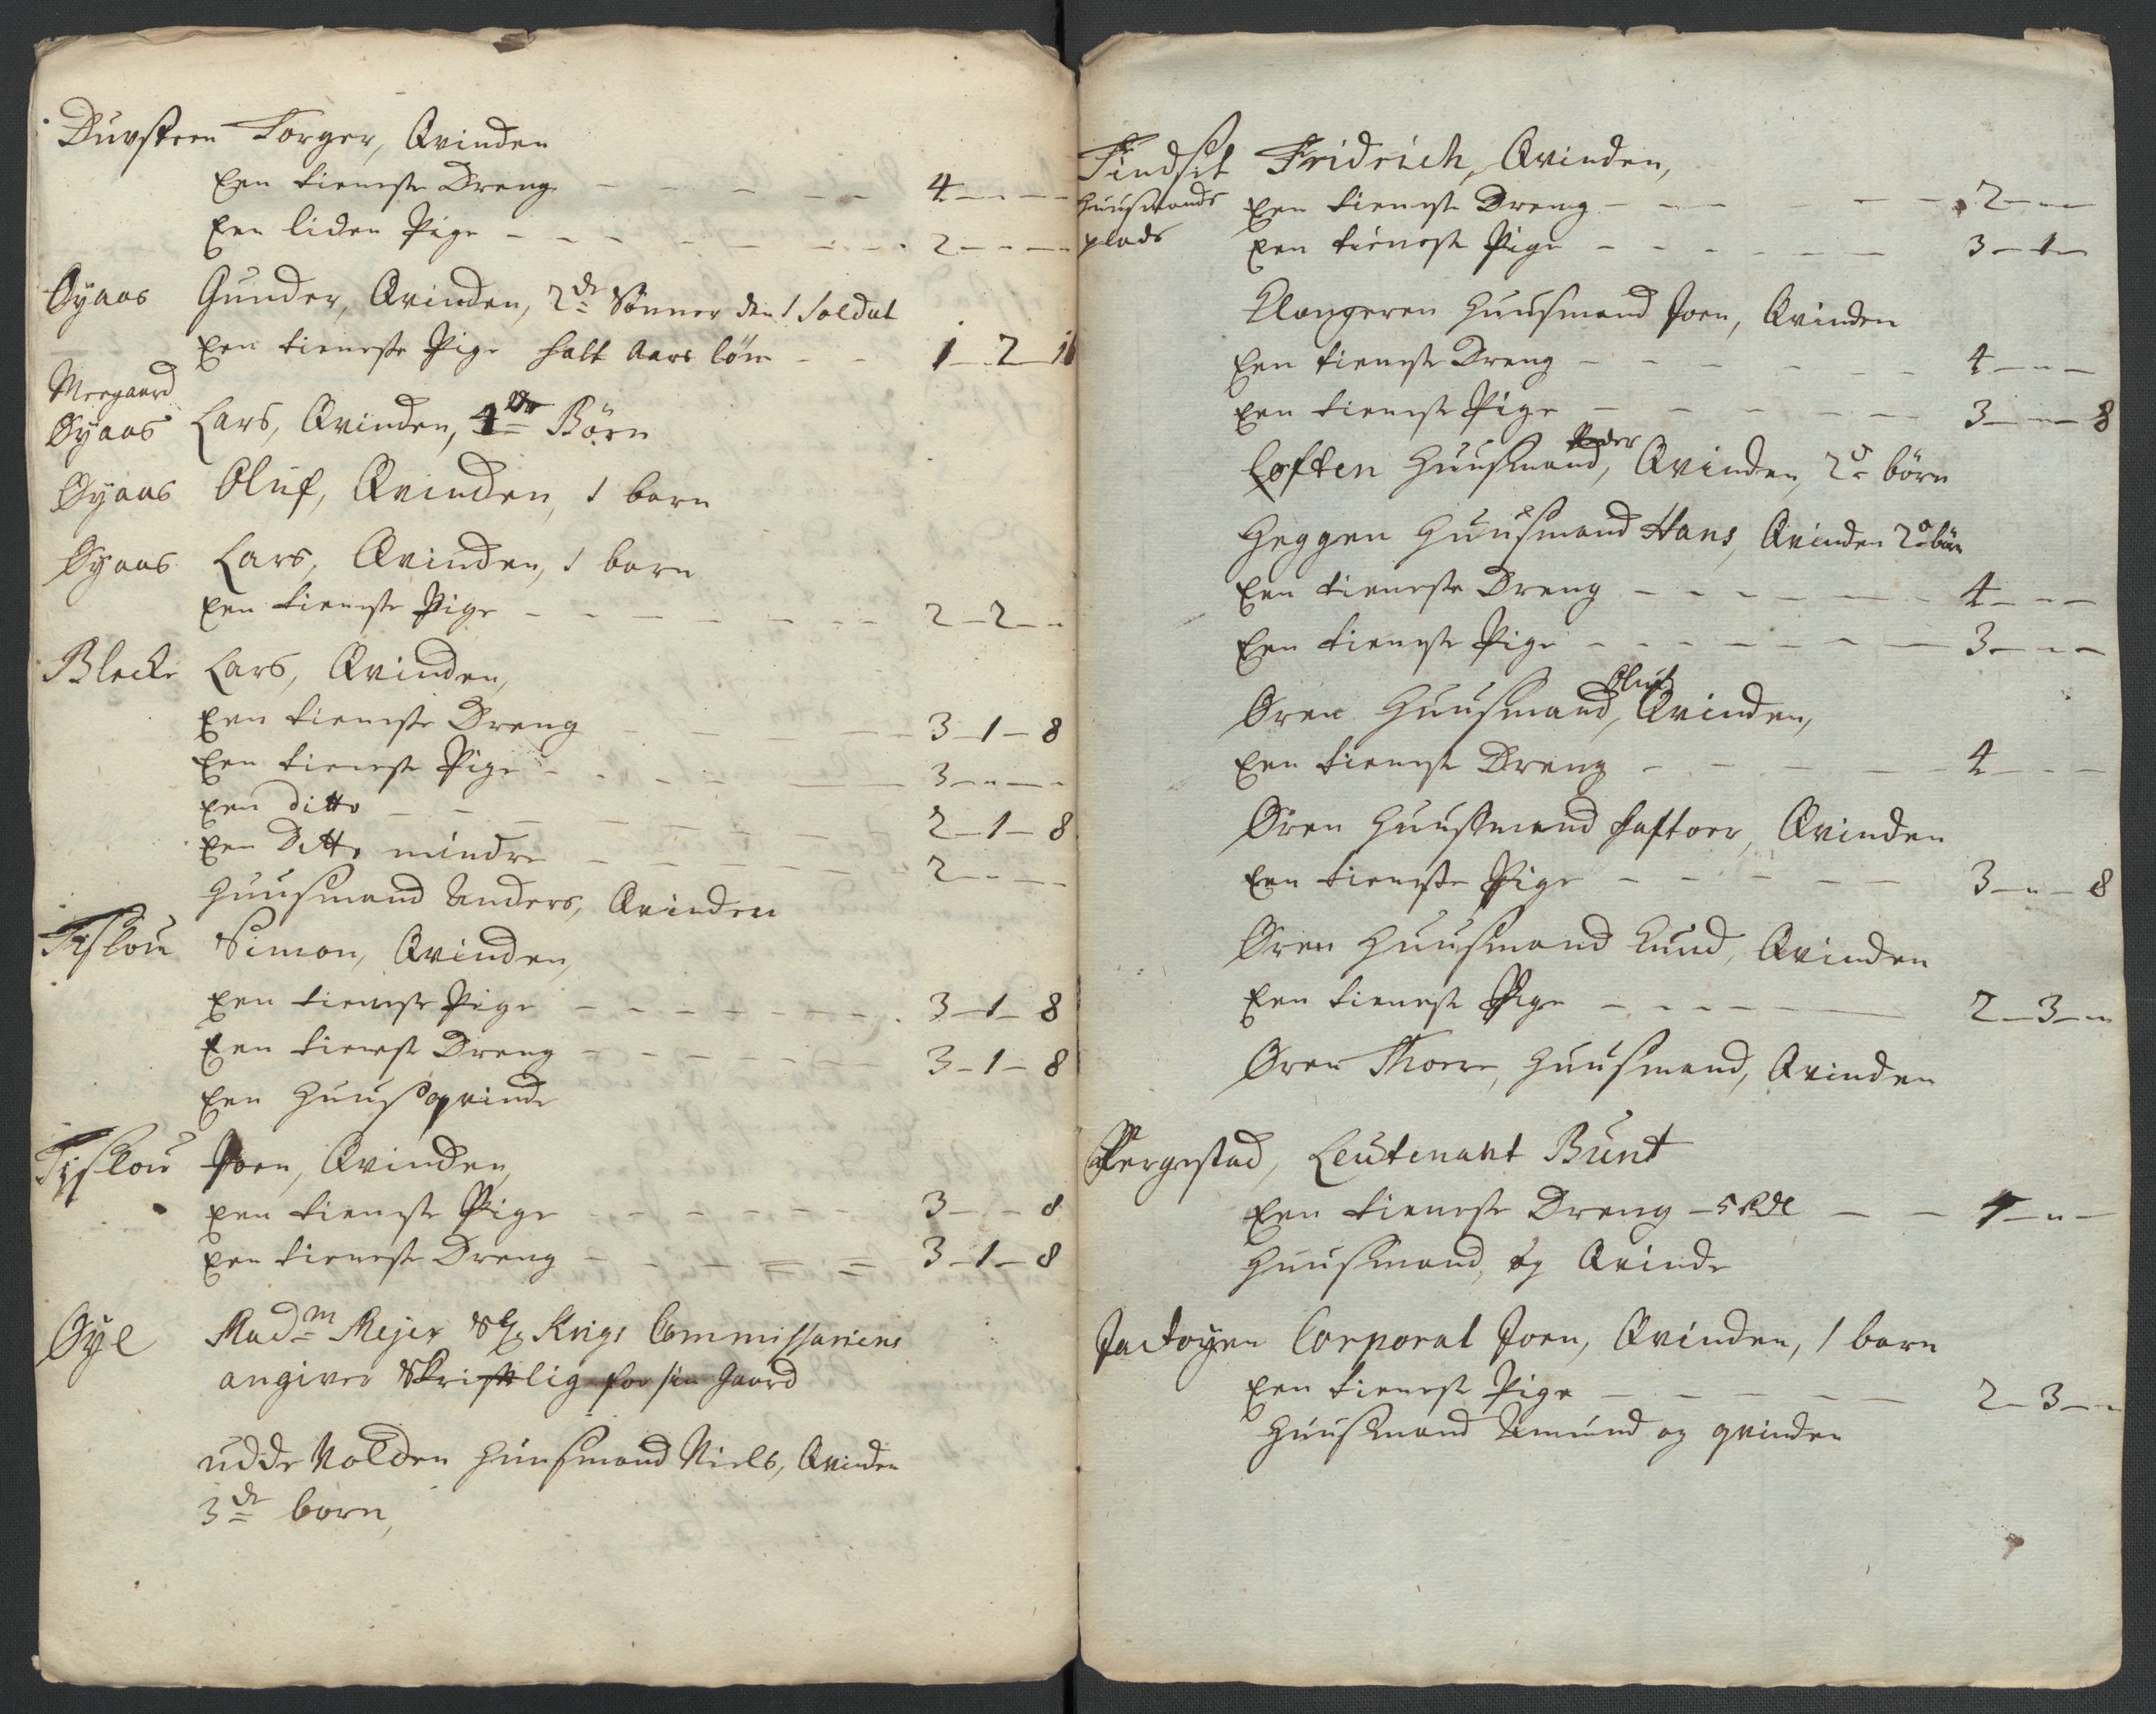 Duvsteen Torger, Qvinden
Een tieneste Dreng - - - - - 4 - - -
Een liden Pige - - - - - - 2 - - -
Øyaas Gunder, Qvinden, 2de Sønner den 1 Soldat
Een tieneste Pige halt Aars løn - - 1 - 2 - 16
Meegaard
Øyaas Lars, Qvinden, 4de Børn
Øyaas Oluf, Qvinden, 1 barn
Øyaas Lars, Qvinden, 1 barn
Een tieneste Pige - - - - - - 2 - 2 - -
Blecke Lars, Qvinden,
Een tieneste Dreng - - - - - 3 - 1 - 8
Een tieneste Pige - - - - - - 3 - - -
Een ditto - - - - - - 2 - 1 - 8
Een Ditto mindre - - - - - 2 - - -
Huusmand Anders, Qvinden
Tislou Simon, Qvinden,
Een tieneste Pige - - - - - - 3 - 1 - 8
Een tieneste Dreng - - - - - 3 - 1 - 8
Een Huusqvinde
Tyslou Joen, Qvinden,
Een tieneste Pige - - - - - - 3 - - 8
Een tieneste Dreng - - - - - 3 - 1 - 8
Øye Madm Mejer Sl. Krigs Commissariens
angiver Skriftlig for sin Gaard
udde Volden Huusmand Niels, Qvinden
3de børn,
Findset Fridrich, Qvinden,
Huusmands Een tieneste Dreng - - - - - 2 - - -
plads Een tieneste Pige - - - - - 3 - 1 -
Klongeren Huusmand Joen, Qvinden
Een tieneste Dreng - - - - - 4 - - -
Een tieneste Pige - - - - - 3 - - 8
Peder
Loften Huusmand, Qvinden, 2de børn
Heggen Huusmand Hans, Qvinden 2de børn
Een tieneste Dreng - - - - - 4 - - -
Een tieneste Pige - - - - - 3 - - -
Oluf
Øren Huusmand, Qvinden,
Een tieneste Dreng - - - - - 4 - - -
Øren Huusmand Haftoer, Qvinden
Een tieneste Pige - - - - - 3 - - 8
Øren Huusmand Knud, Qvinden
Een tieneste Pige - - - - - 2 - 3 - -
Øren Thoere, Huusmand, Qvinden
Fergestad, Leutenant Bunt
Een tieneste Dreng - 5 Rdl - - 4 - - -
Huusmand, og Qvinde
Jadøyen Corporal Joen, Qvinden, 1 barn
Een tieneste Pige - - - - - 2 - 3 - -
Huusmand Amund og qvinden